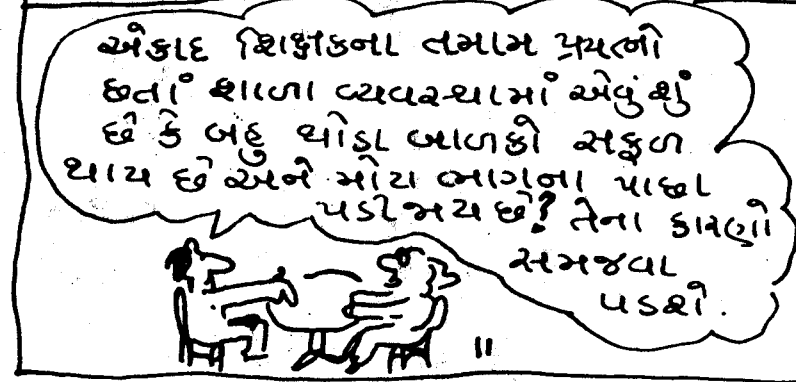 એકાદ શિક્ષકના તમામ પ્રયત્નો
છતાં શાળા વ્યવસ્થામાં એવું શું
છે કે બહુ થોડા બાળકો સફળ
થાય છે અને મોટા ભાગના પાછા
પડી જાય છે? તેના કારણો
સમજવા
પડશે.
11